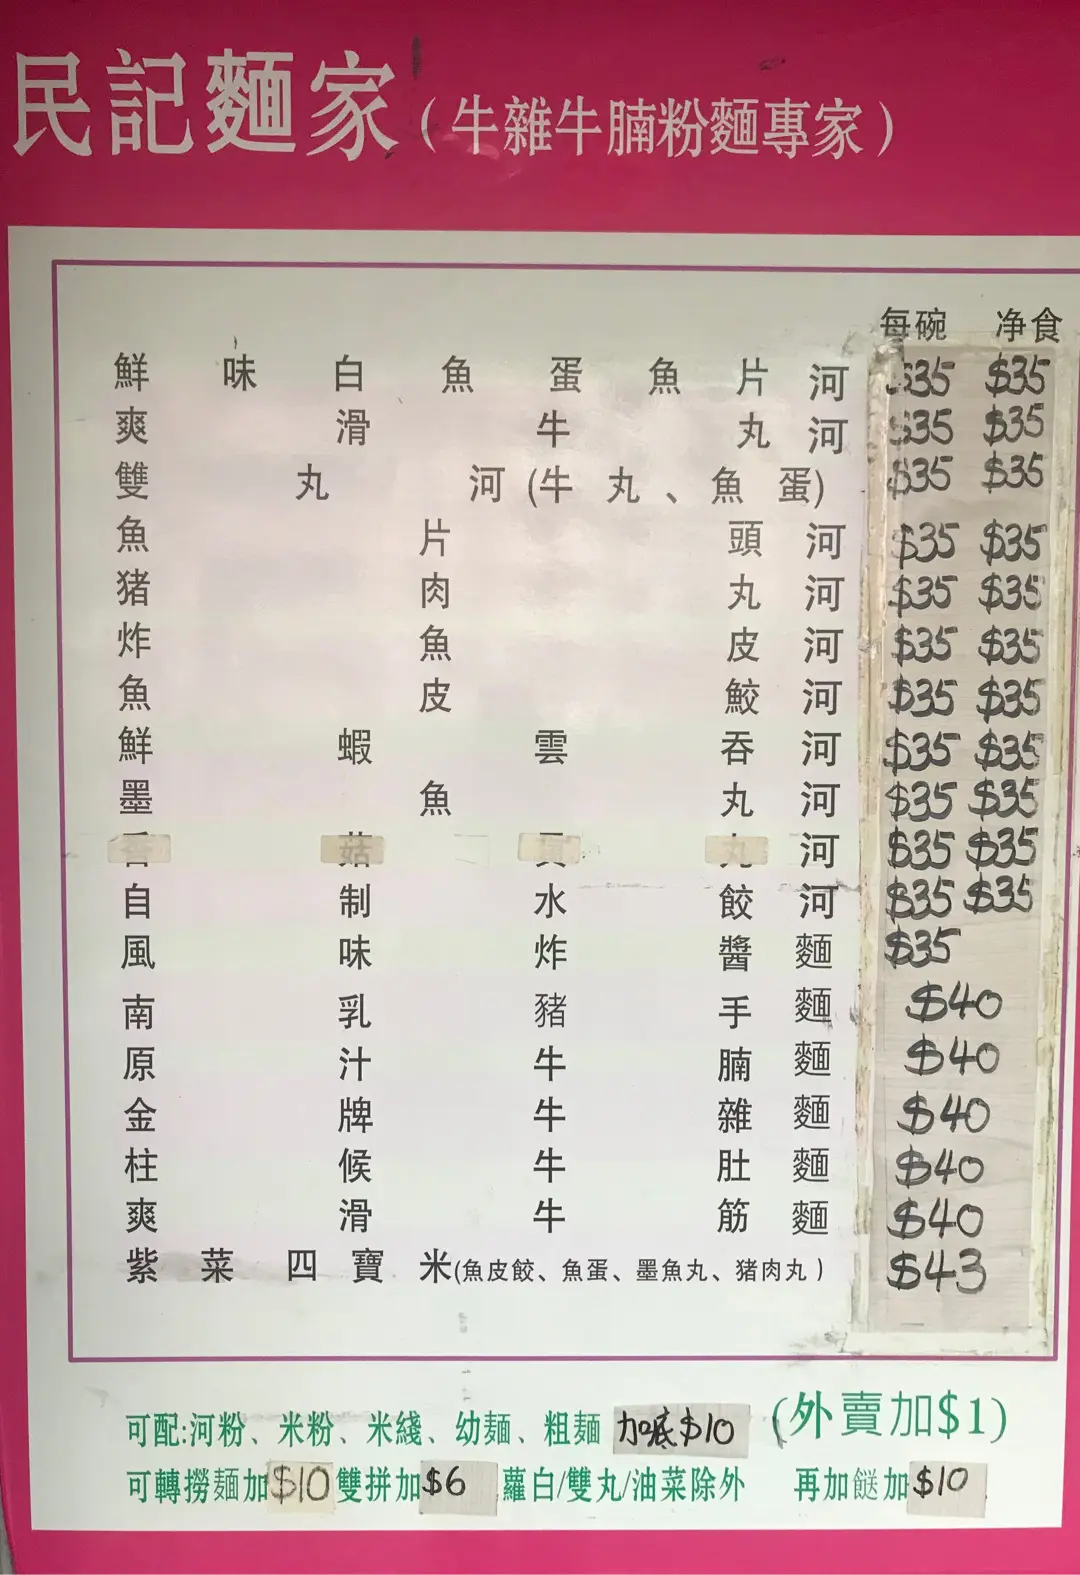 民記麵家（牛雜牛腩粉麵專家）
每碗 净食
鮮味白魚蛋魚片河 $35 $35
爽滑牛丸河 $35 $35
雙丸河(牛丸、魚蛋) $35 $35
魚片頭河 $35 $35
猪肉丸河 $35 $35
炸魚皮河 $35 $35
魚皮鮫河 $35 $35
鮮蝦雲吞河 $35 $35
墨魚丸河 $35 $35
香菇貢丸河 $35 $35
自制水餃河 $35 $35
風味炸醬麵 $35
南乳豬手麵 $40
原汁牛腩麵 $40
金牌牛雜麵 $40
柱候牛肚麵 $40
爽滑牛筋麵 $40
紫菜四寶米(魚皮餃、魚蛋、墨魚丸、猪肉丸) $43
可配:河粉、米粉、米綫、幼麵、粗麵 加底$10 (外賣加$1)
可轉撈麵加$10雙拼加$6 蘿白/雙丸/油菜除外 再加餸加$10